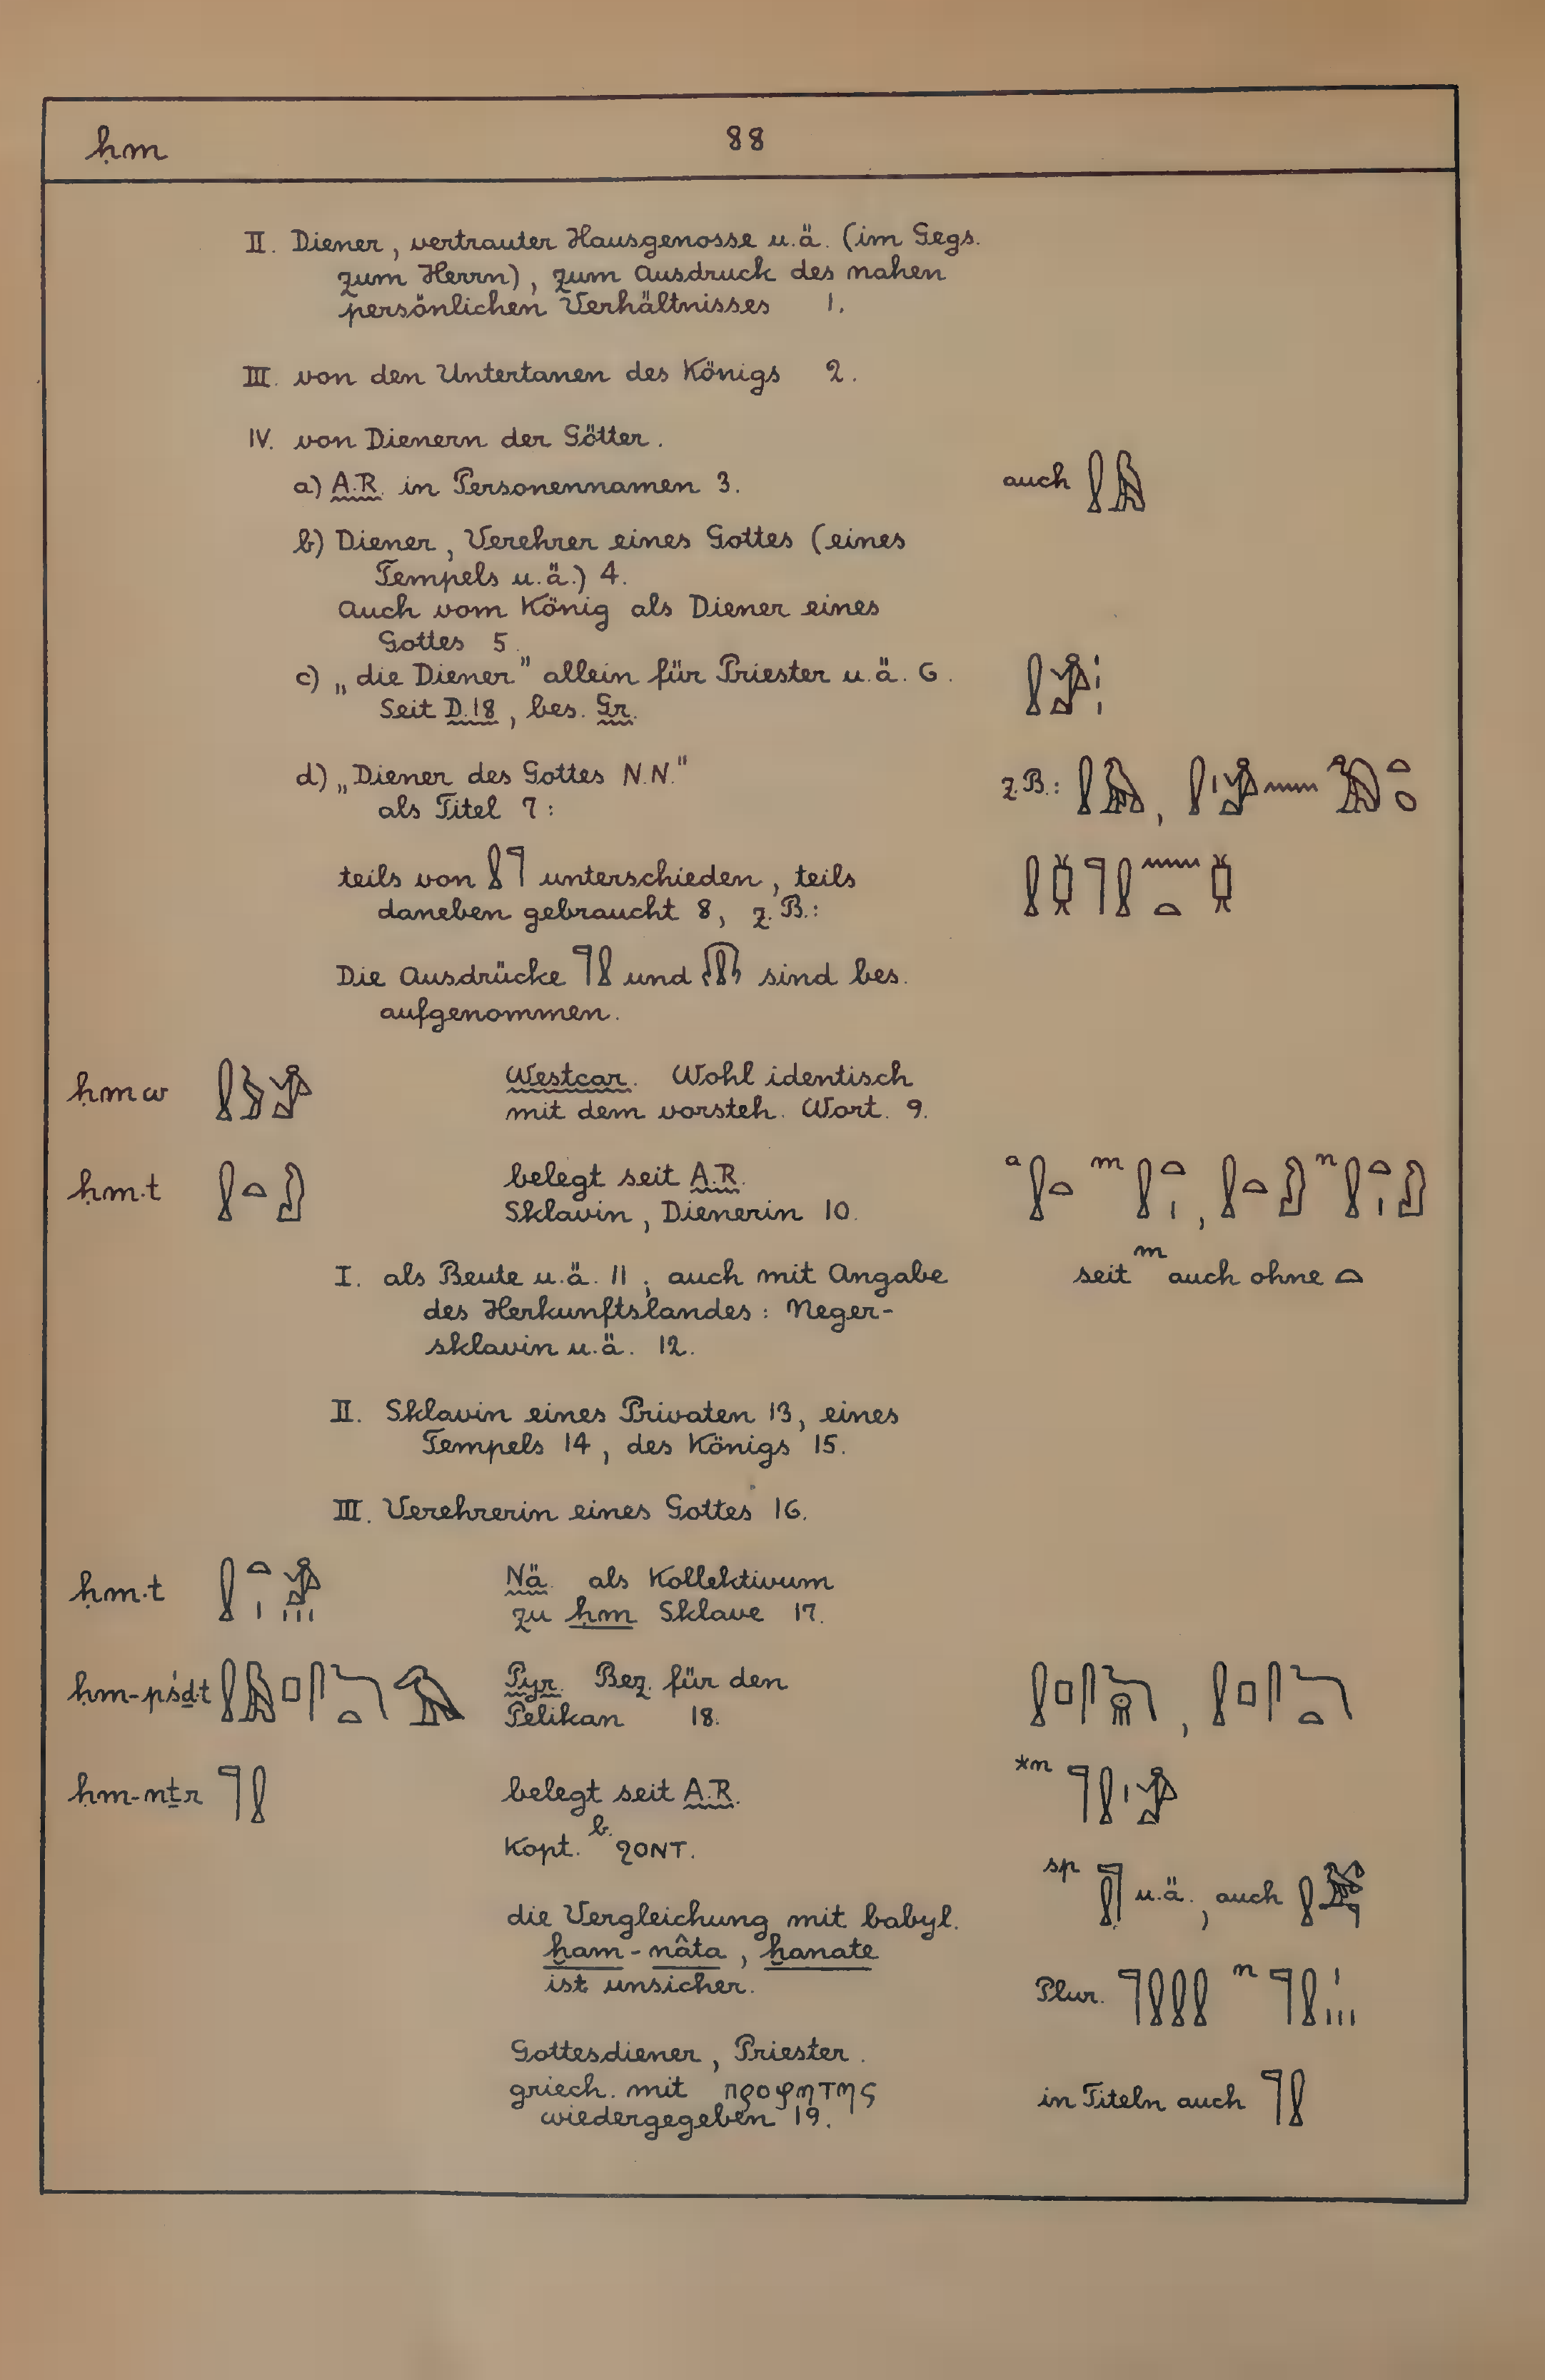 ḥm
88
II. Diener, vertrauter Hausgenosse u.ä. (im Gegs.
zum Herrn), zum Ausdruck des nahen
persönlichen Verhältnisses 1.
III. von den Untertanen des Königs 2.
IV. von Dienern der Götter.
a) A.R. in Personennamen 3. auch
b) Diener, Verehrer eines Gottes (eines
Tempels u.ä.) 4.
Auch vom König als Diener eines
Gottes 5.
c) „die Diener" allein für Priester u.ä. 6.
Seit D.18, bes. Gr.
d) „Diener des Gottes N.N." z.B.: ,
als Titel 7:
teils von unterschieden, teils
daneben gebraucht 8, z.B.:
Die Ausdrücke und sind bes.
aufgenommen.
ḥmw Westcar. Wohl identisch
mit dem vorsteh. Wort. 9.
ḥm·t belegt seit A.R. a m , n
Sklavin, Dienerin 10.
I. als Beute u.ä. 11; auch mit Angabe seit m auch ohne
des Herkunftslandes: Neger-
sklavin u.ä. 12.
II. Sklavin eines Privaten 13, eines
Tempels 14, des Königs 15.
III. Verehrerin eines Gottes 16.
ḥm·t Nä. als Kollektivum
zu ḥm Sklave 17.
ḥm-pśḏ·t Pyr. Bez. für den ,
Pelikan 18.
ḥm-nṯr belegt seit A.R. *n
Kopt. b. ϩONT.
sp u.ä., auch
die Vergleichung mit babyl.
ḫam-nâta, ḫanate
ist unsicher.
Plur. n
Gottesdiener, Priester.
griech. mit προφητης in Titeln auch
wiedergegeben 19.